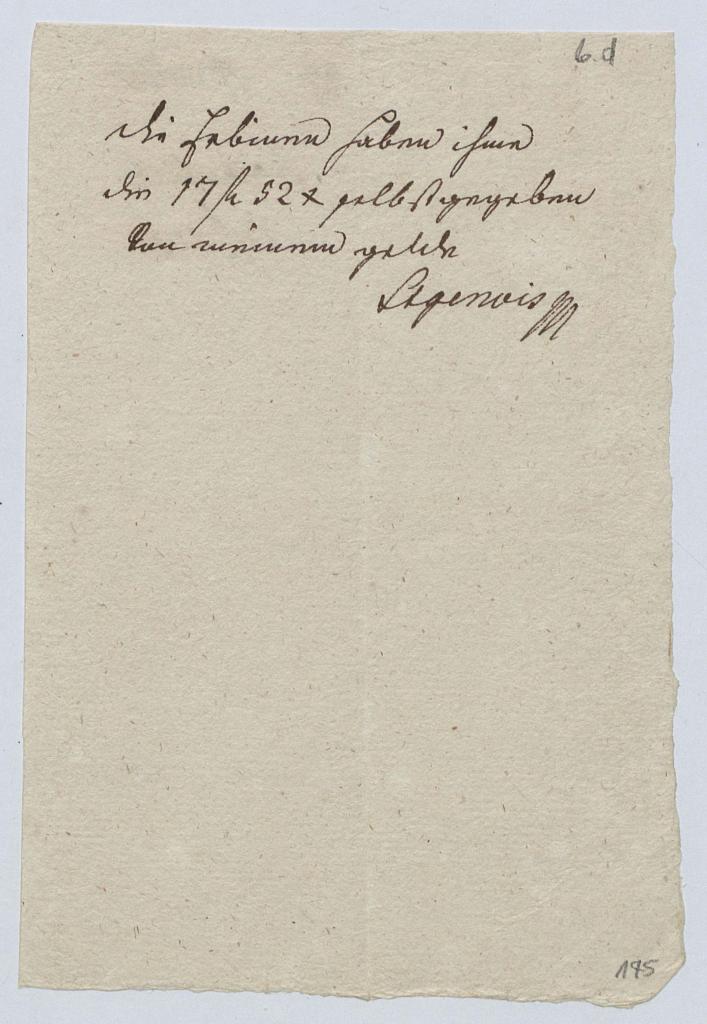 6.d
die haben ihme
die 17 fl 52 x selbst gegeben
von meinem gelde
StGenois
145